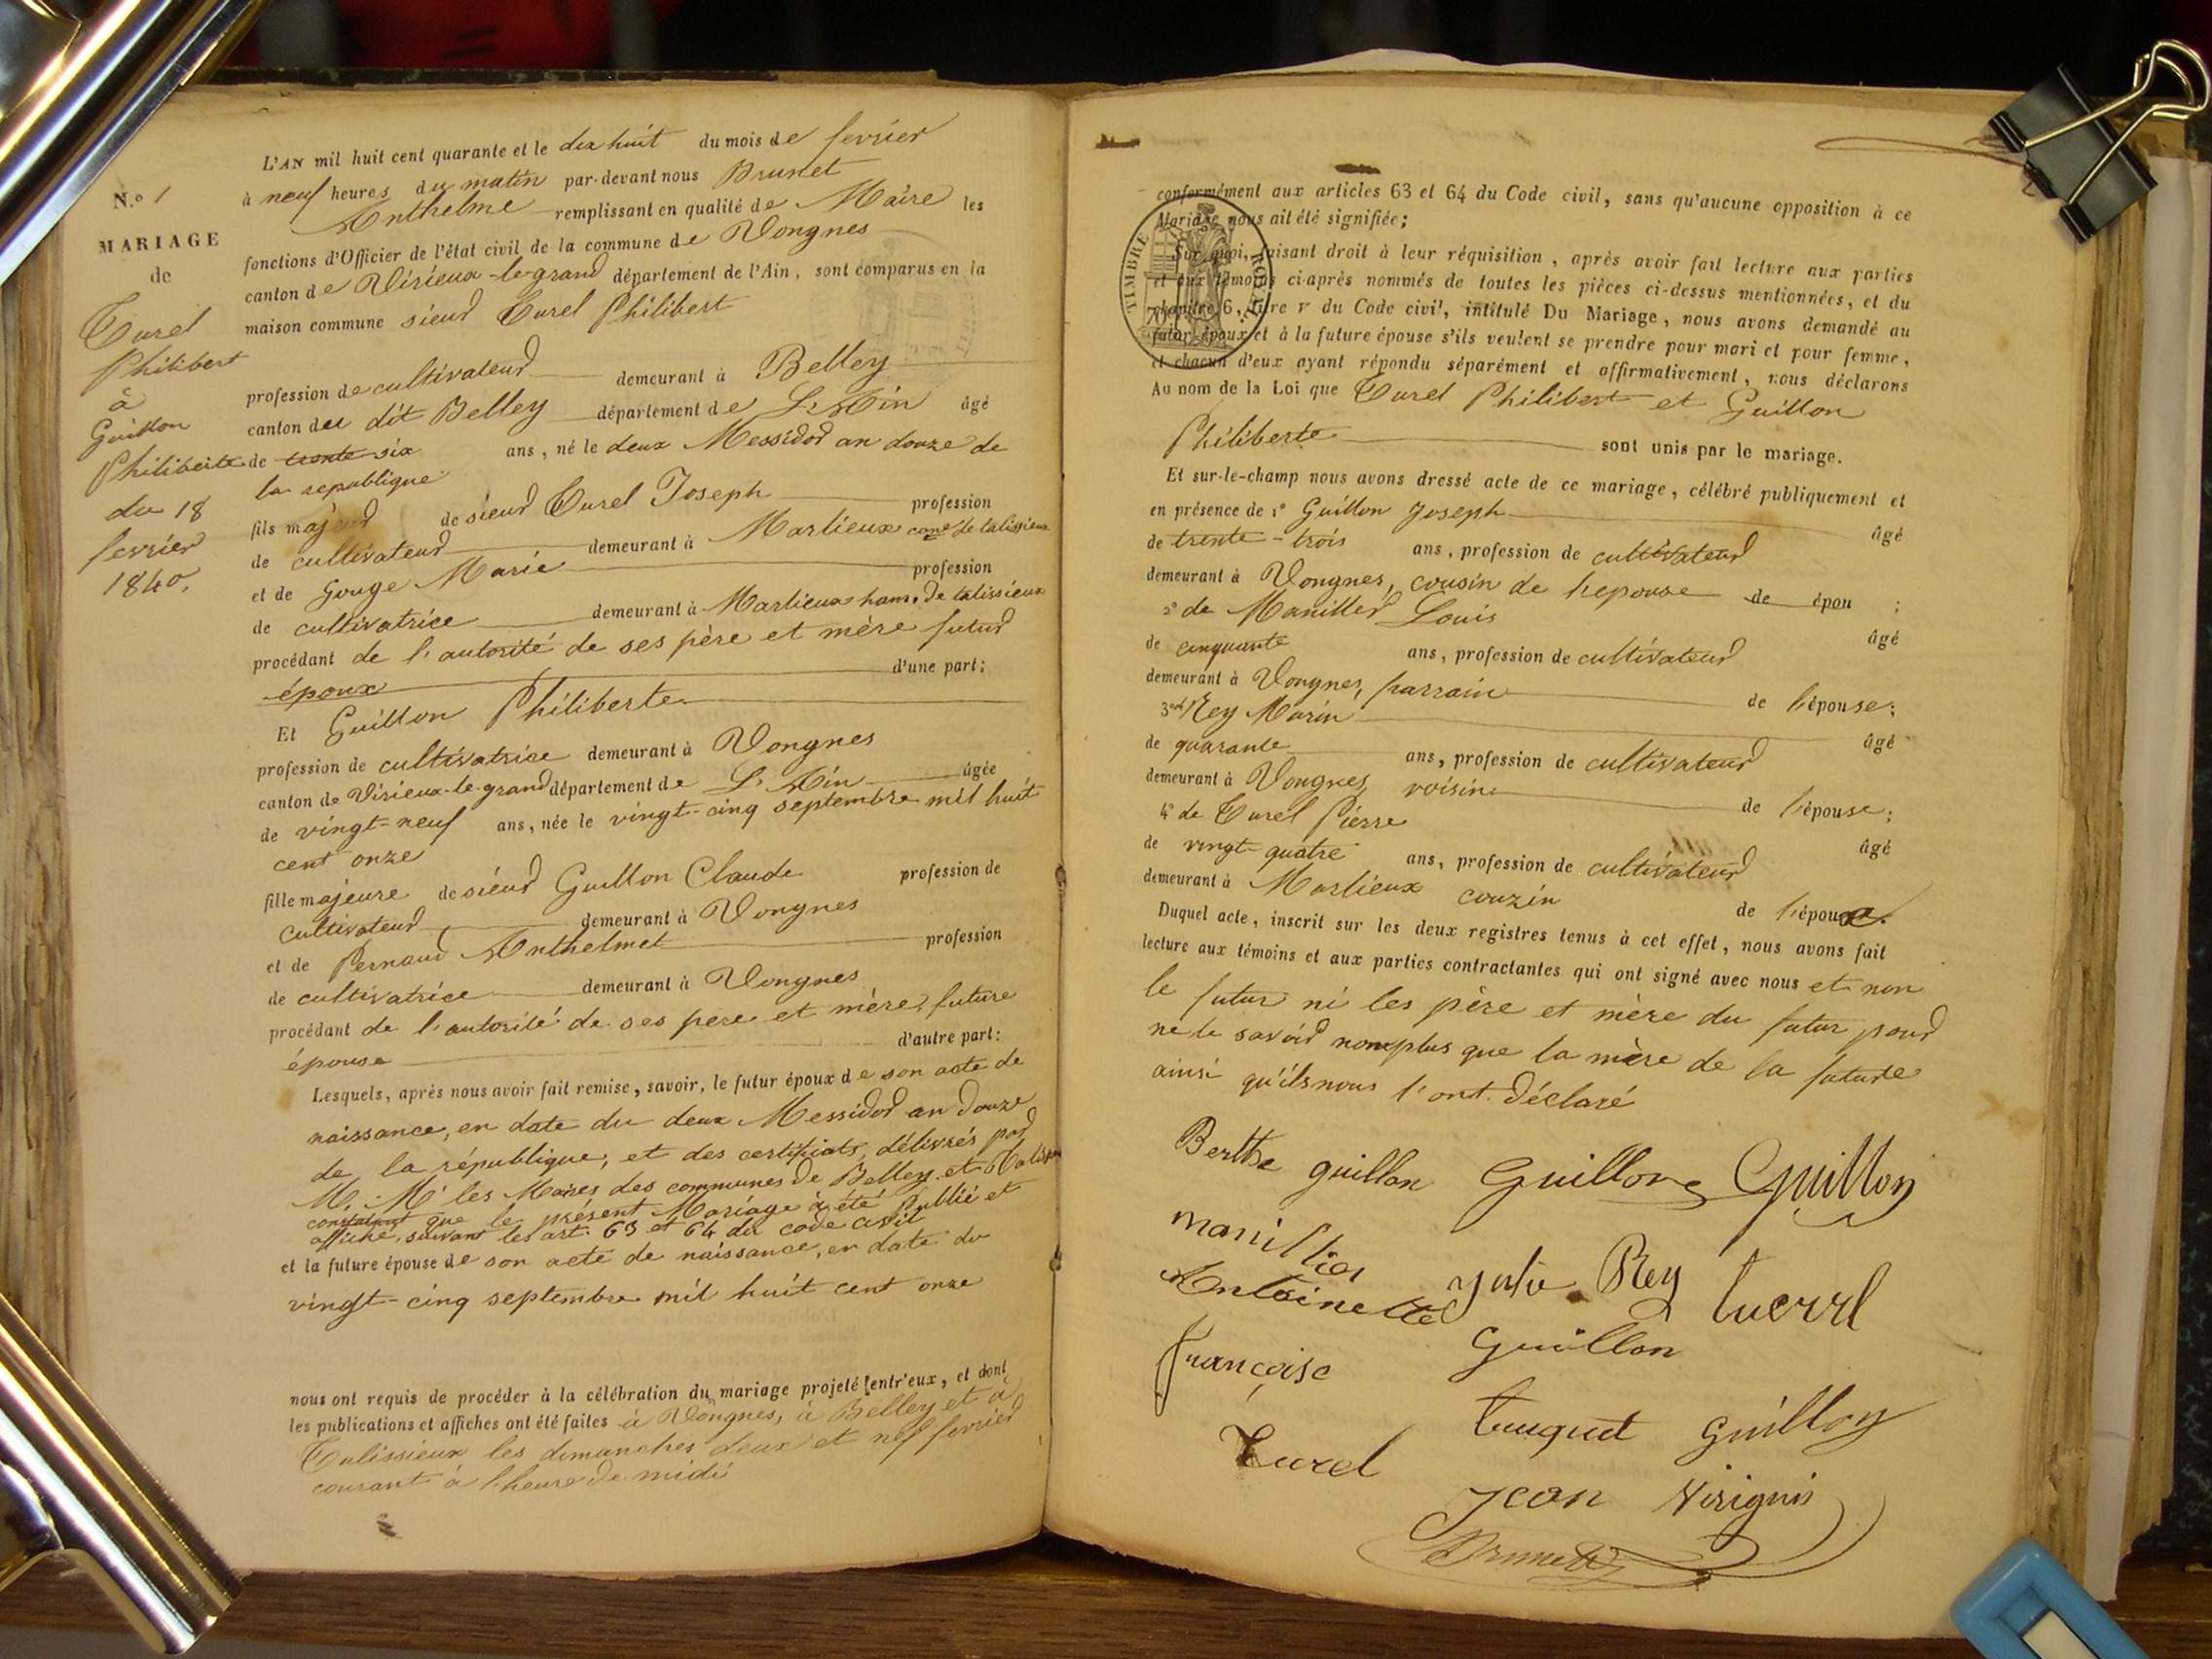 N.º 1
MARIAGE
de
Turel
Philibert
à
Guillon
Philiberte
du 18
fevrier
1840.
L'AN mil huit cent quarante et le dix huit du mois de fevrier
à neuf heures du matin par-devant nous Brunet
Anthelme remplissant en qualité de Maire les
fonctions d'Officier de l'état civil de la commune de Vongnes
canton de Virieux-le-grand département de l'Ain, sont comparus en la
maison commune sieur Turel Philibert
profession de cultivateur demeurant à Belley
canton du dit Belley département de L'Ain âgé
de trente-six ans, né le deux Messidor an douze de
la republique
fils majeur de sieur Turel Joseph profession
de cultivateur demeurant à Marlieux cone de talissieux
et de Gouge Marie profession
de cultivatrice demeurant à Marlieux ham. de talissieux
procédant de l'autorité de ses père et mère futur
époux d'une part;
Et Guillon Philiberte
profession de cultivatrice demeurant à Vongnes
canton de Virieux-le-grand département de L'Ain âgée
de vingt-neuf ans, née le vingt-cinq septembre mil huit
cent onze
fille majeure de sieur Guillon Claude profession de
cultivateur demeurant à Vongnes
et de Pernaud Anthelmet profession
de cultivatrice demeurant à Vongnes
procédant de l'autorité de ses pere et mère, future
épouse d'autre part:
Lesquels, après nous avoir fait remise, savoir, le futur époux de son acte de
naissance, en date du deux Messidor an douze
de la république, et des certificats, délivrés par
M. M. les Maires des communes de Belley et
constatant que le présent Mariage à été Publié et
affiché, suivant les art. 63 et 64 du code civil
et la future épouse de son acte de naissance, en date du
vingt-cinq septembre mil huit cent onze
nous ont requis de procéder à la célébration du mariage projeté entr'eux, et dont
les publications et affiches ont été faites à Vongnes, à Belley et à
Talissieux les dimanches deux et nef fevrier
courant à l'heure de midi
TIMBRE ROYAL
conformément aux articles 63 et 64 du Code civil, sans qu'aucune opposition à ce
Mariage nous ait été signifiée;
Sur quoi, faisant droit à leur réquisition, après avoir fait lecture aux parties
et aux témoins ci-après nommés de toutes les pièces ci-dessus mentionnées, et du
chapitre 6, titre v du Code civil, intitulé Du Mariage, nous avons demandé au
futur époux et à la future épouse s'ils veulent se prendre pour mari et pour femme,
et chacun d'eux ayant répondu séparément et affirmativement, nous déclarons
Au nom de la Loi que Turel Philibert et Guillon
Philiberte sont unis par le mariage.
Et sur-le-champ nous avons dressé acte de ce mariage, célébré publiquement et
en présence de 1º Guillon Joseph âgé
de trente-trois ans, profession de cultivateur
demeurant à Vongnes, cousin de lepouse de épou ;
2º de Manillier Louis âgé
de cinquante ans, profession de cultivateur
demeurant à Vongnes, parrain de l'épouse;
3º de Rey Marin âgé
de quarante ans, profession de cultivateur
demeurant à Vongnes voisin de l'épouse;
4º de Turel Pierre âgé
de vingt-quatre ans, profession de cultivateur
demeurant à Marlieux couzin de l'époux.
Duquel acte, inscrit sur les deux registres tenus à cet effet, nous avons fait
lecture aux témoins et aux parties contractantes qui ont signé avec nous et non
le futur ni les père et mère du futur pour
ne le savoir nonplus que la mère de la future
ainsi qu'ils nous l'ont déclaré
Berthe guillon Guillon Guillon
manillier Rey tuerrl
Antoinette Guillon
françoise
Turel tuquet guillon
Jean Virignin
Brunet